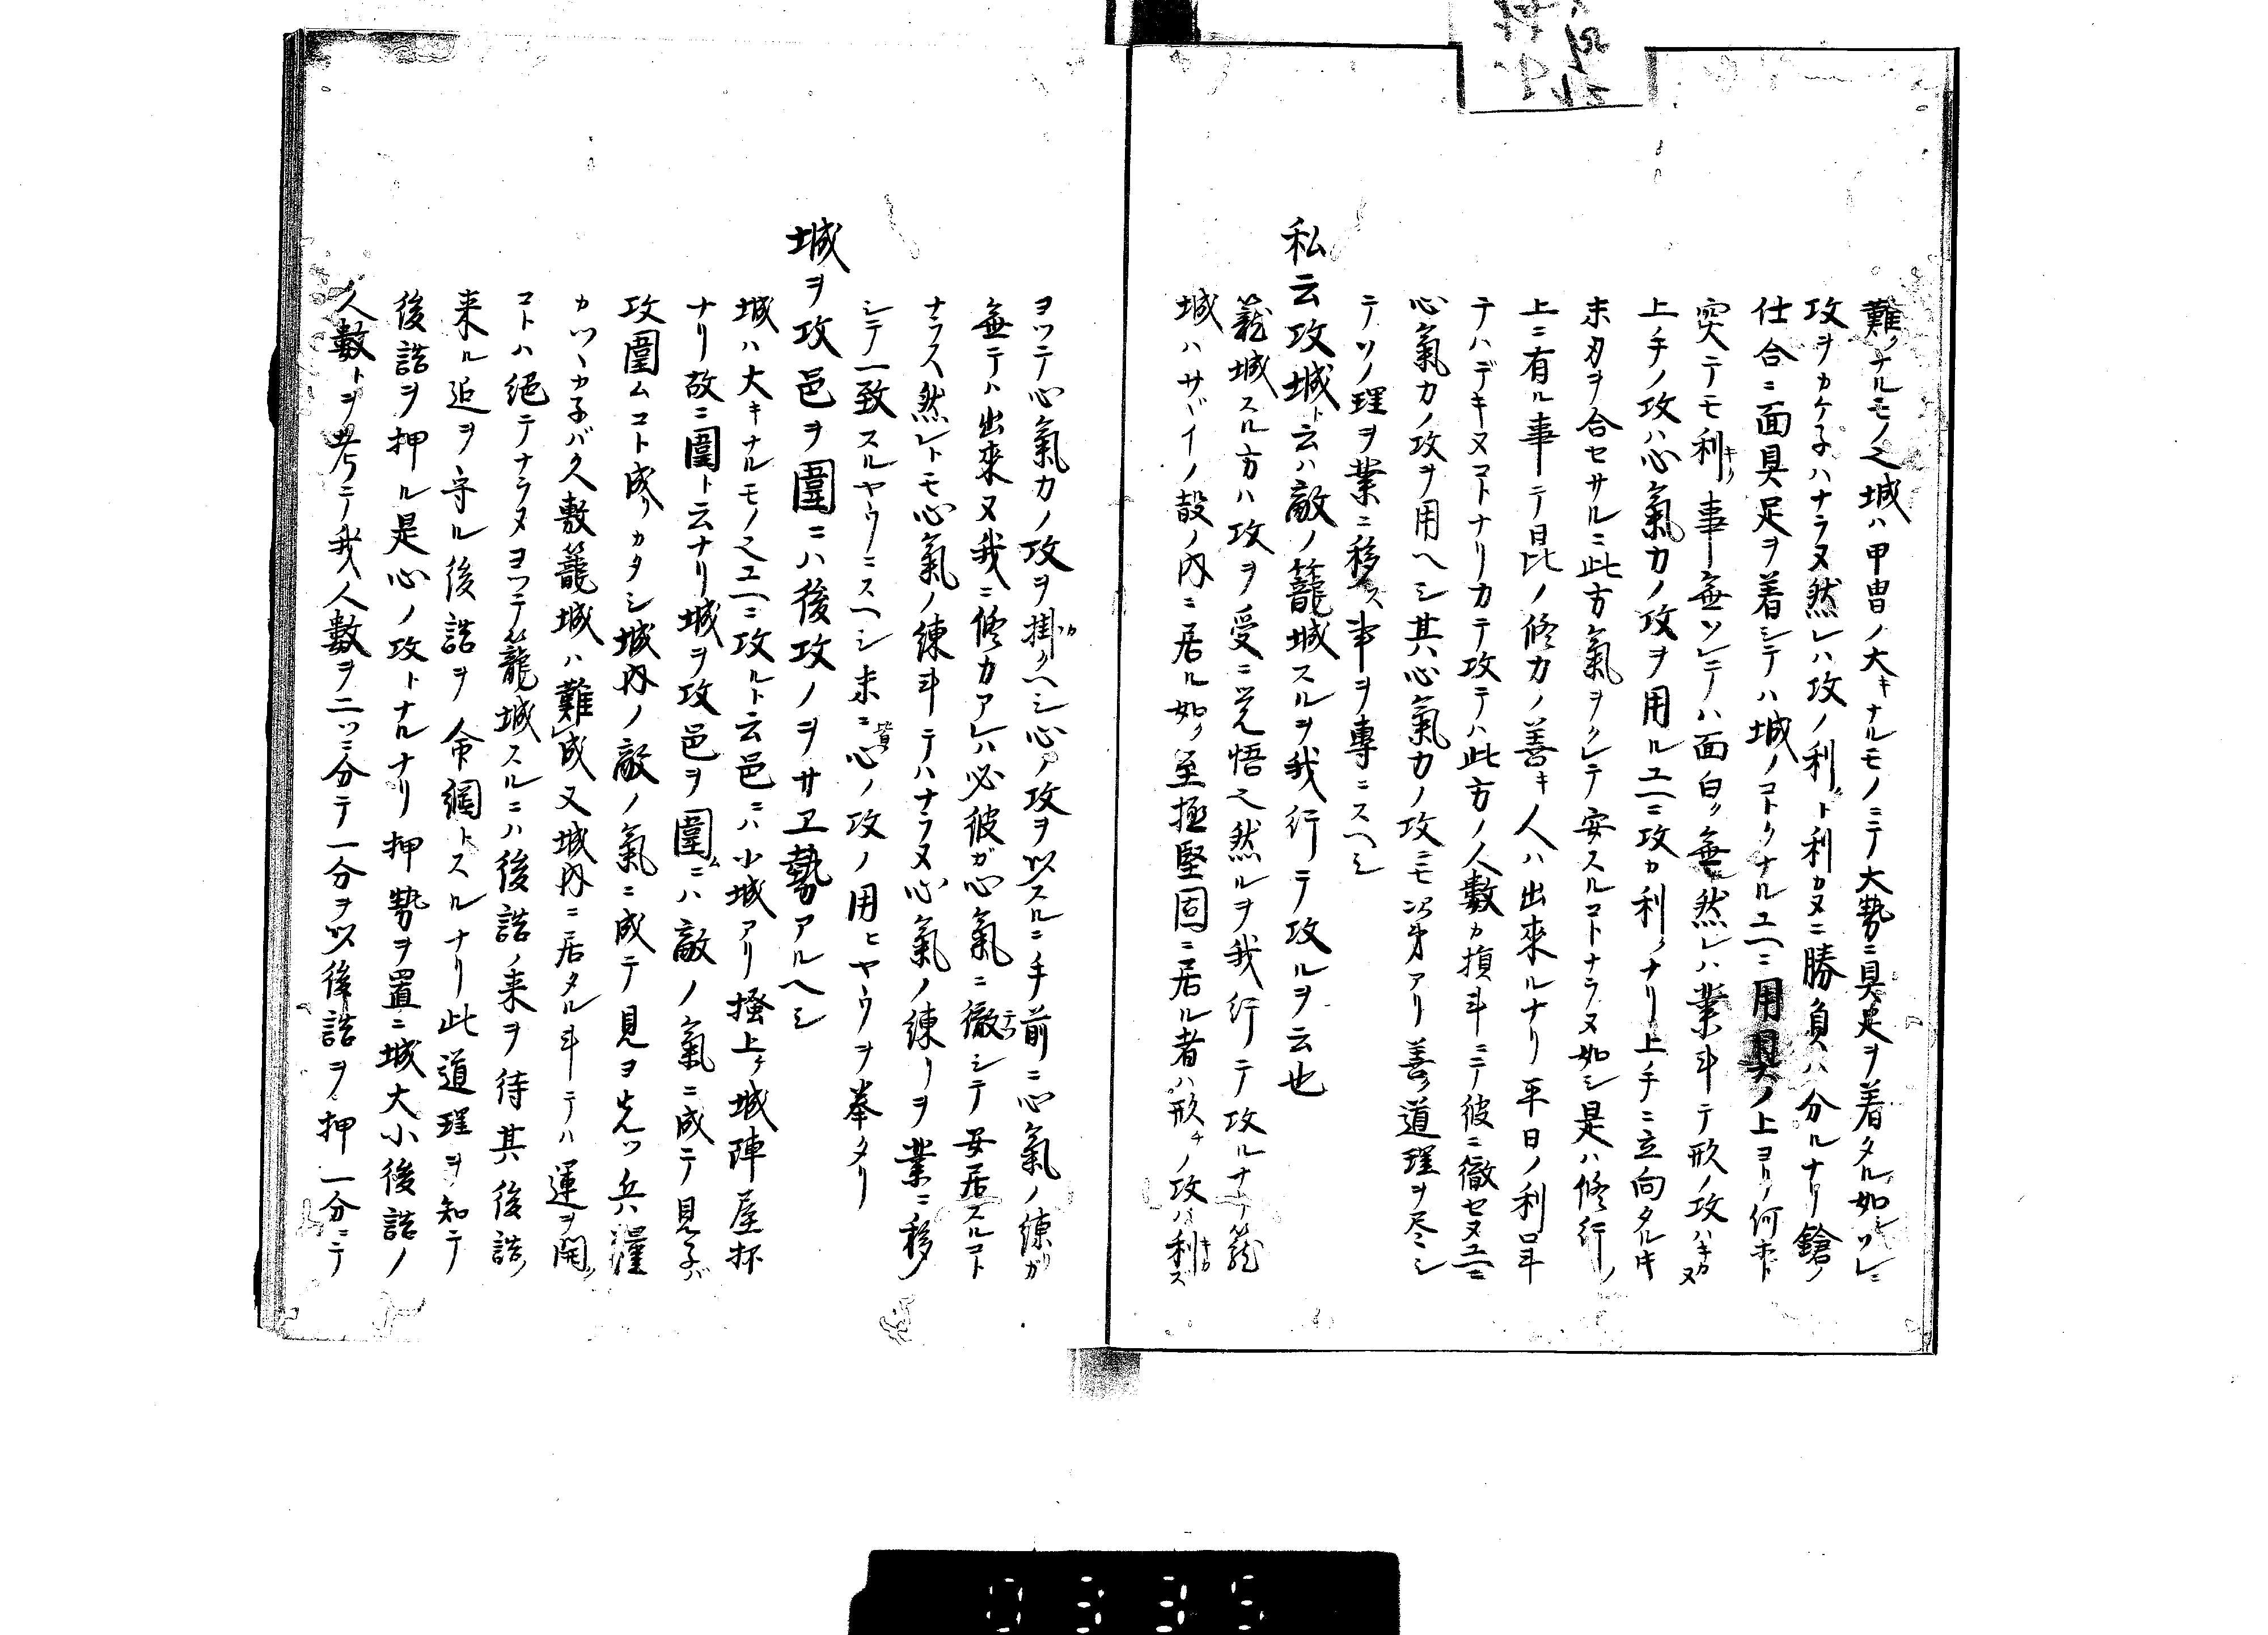 難ノナルモノ之城ハ甲冑ノ大キナルモノニテ大勢ニ具足ヲ着タル如シソレニ
攻ヲカケ子ハナラヌ然レハ攻ノ利ト利カヌニ勝負ハ分ルナリ鎗ノ
仕合ニ面具足ヲ着シテハ城ノコトクナルユヘニ用具ノ上ヨリノ何ホト
突テモ利事無ソレテハ面白ク無然レハ業斗テ形ノ攻ハキカヌ
上手ノ攻ハ心氣力ノ攻ヲ用ルユヘニ攻カ利クナリ上手ニ立向タル㐧
未刀ヲ合セサルニ此方氣ヲクレテ安スルコトナラヌ如シ是ハ修行ノ
上ニ有ル事テ昆ノ修力ノ善キ人ハ出來ルナリ平日ノ利口斗
テハデキヌコトナリカテ攻テハ此方ノ人數カ損斗ニテ彼ニ徹セヌユヘニ
心氣力ノ攻ヲ用ヘシ其心氣力ノ攻ニモ次第アリ善道理ヲ尽シ
テソノ理ヲ業ニ移ス事ヲ專ニスヘシ
私云攻城ト云ハ敵ノ籠城スルヲ我行テ攻ルヲ云也
籠城スル方ハ攻ヲ受ニ覚悟之然ルヲ我行テ攻ルナリ籠
城ハサヾイノ殻ノ内ニ居ル如ク至極堅固ニ居ル者ハ形チノ攻ハ利ス
ヨツテ心氣力ノ攻ヲ掛クヘシ心ノ攻ヲ以スルニ手前ニ心氣ノ練リカ
無テハ出來ヌ我ニ修力アレハ必彼ガ心氣ニ徹シテ安居スルコト
ナラス然レトモ心氣ノ練斗テハナラヌ心氣ノ練リヲ業ニ移
シテ一致スルヤウニスヘシ末ニ心ノ攻ノ用ヒヤウヲ挙タリ
城ヲ攻邑ヲ圍ニハ後攻ノヲサヱ勢アルヘシ
城ハ大キナルモノ之ユヘニ攻ルト云邑ニハ小城アリ搔上ケ城陣屋抔
ナリ故ニ圍ト云ナリ城ヲ攻邑ヲ圍ムニハ敵ノ氣ニ成テ見子バ
攻圍ムコト成リカタシ城内ノ敵ノ氣ニ成テ見ヨ先ツ兵ハ糧
カツヽカ子バ久敷籠城ハ難成又城内ニ居タル斗テハ運ヲ開ク
コトハ絶テナラヌヨツテ籠城スルニハ後詰ノ来ヲ待其後詰ノ
来ル迠ヲ守ル後詰ヲ命綱トスルナリ此道理ヲ知テ
後詰ヲ押ル是心ノ攻トナルナリ押勢ヲ置ニ城大小後詰ノ
人數トヲ考テ我人數ヲ二ツニ分テ一分ヲ以後詰ヲ押一分ニテ
0335